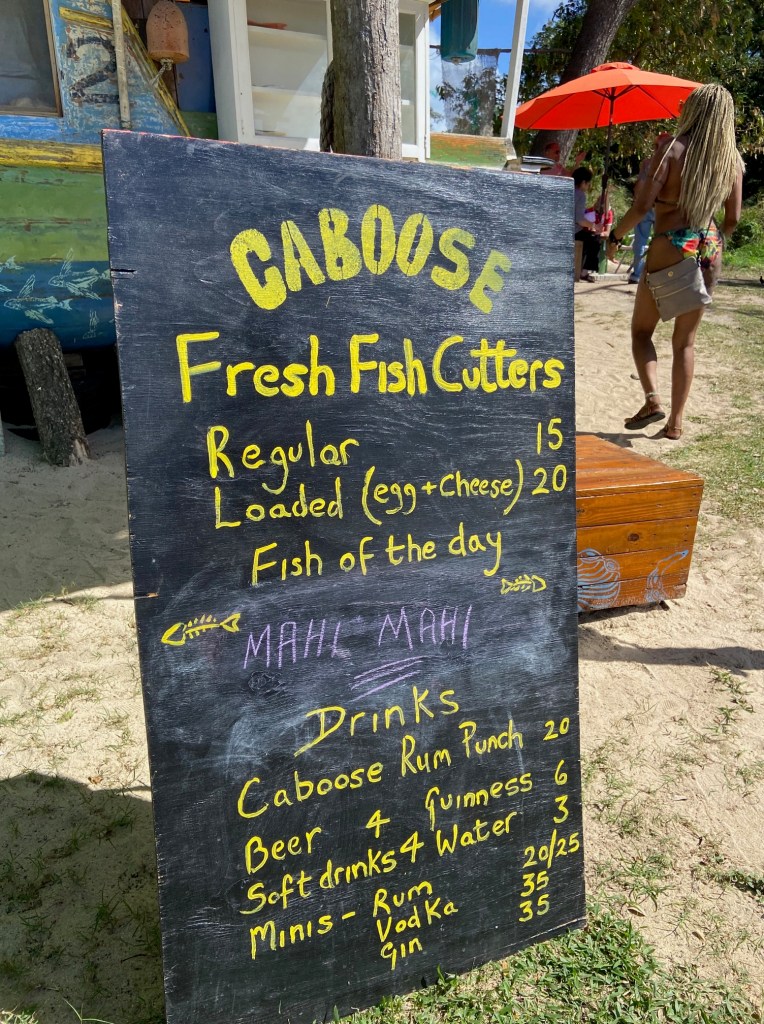 2
CABOOSE
Fresh Fish Cutters
Regular 15
Loaded (egg + Cheese) 20
Fish of the day
MAHI MAHI
Drinks
Caboose Rum Punch 20
Beer 4 Guinness 6
Soft drinks 4 Water 3
Minis - Rum 20/25
Vodka 35
Gin 35